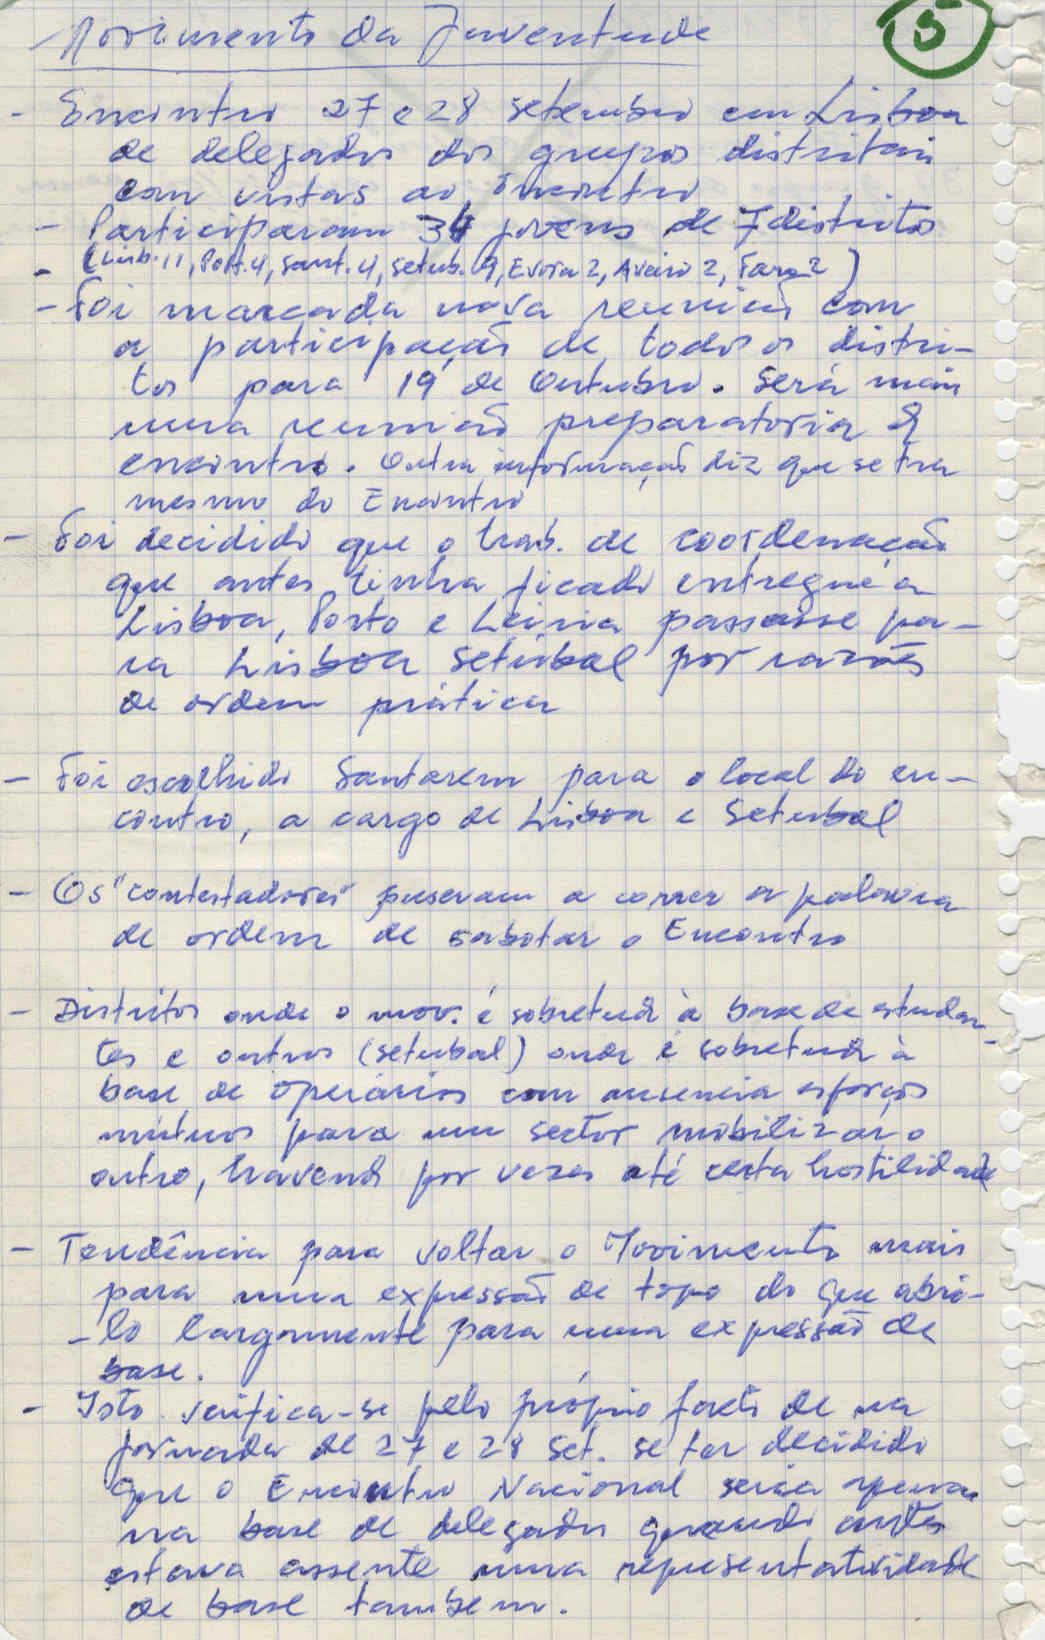 Movimento da Juventude
5
- Encontro 27 e 28 setembro em Lisboa
de delegados dos grupos distritais
com vistas ao encontro
- Participaram 34 jovens de 7 distritos
- (Lisb. 11, Port. 4, Sant. 4, Setub. 9, Evora 2, Aveiro 2, Faro 2)
- Foi marcada nova reunião com
a participação de todos os distri-
tos para 19 de Outubro. Será mais
uma reunião preparatoria d
encontro. Outra informação diz que se tra
mesmo do Encontro
- Foi decidido que o trab. de coordenação
que antes tinha ficado entregue a
Lisboa, Porto e Leiria passasse pa-
ra Lisboa Setúbal por razões
de ordem prática
- Foi escolhido Santarem para o local do en-
contro, a cargo de Lisboa e Setubal
- Os "contestadores" puseram a correr a palavra
de ordem de sabotar o Encontro
- Distritos onde o mov. é sobretudo à base de estudan-
tes e outros (setubal) onde é sobretudo à
base de operários com ausencia esforços
mútuos para um sector mobilizar o
outro, havendo por vezes até certa hostilidade
- Tendência para voltar o Movimento mais
para uma expressão de topo do que abri-
-lo largamente para uma expressão de
base.
- Isto verifica-se pelo próprio facto de na
jornada de 27 e 28 Set. se ter decidido
que o Encontro Nacional seria apenas
na base de delegados quando antes
estava assente uma representatividade
de base tambem.